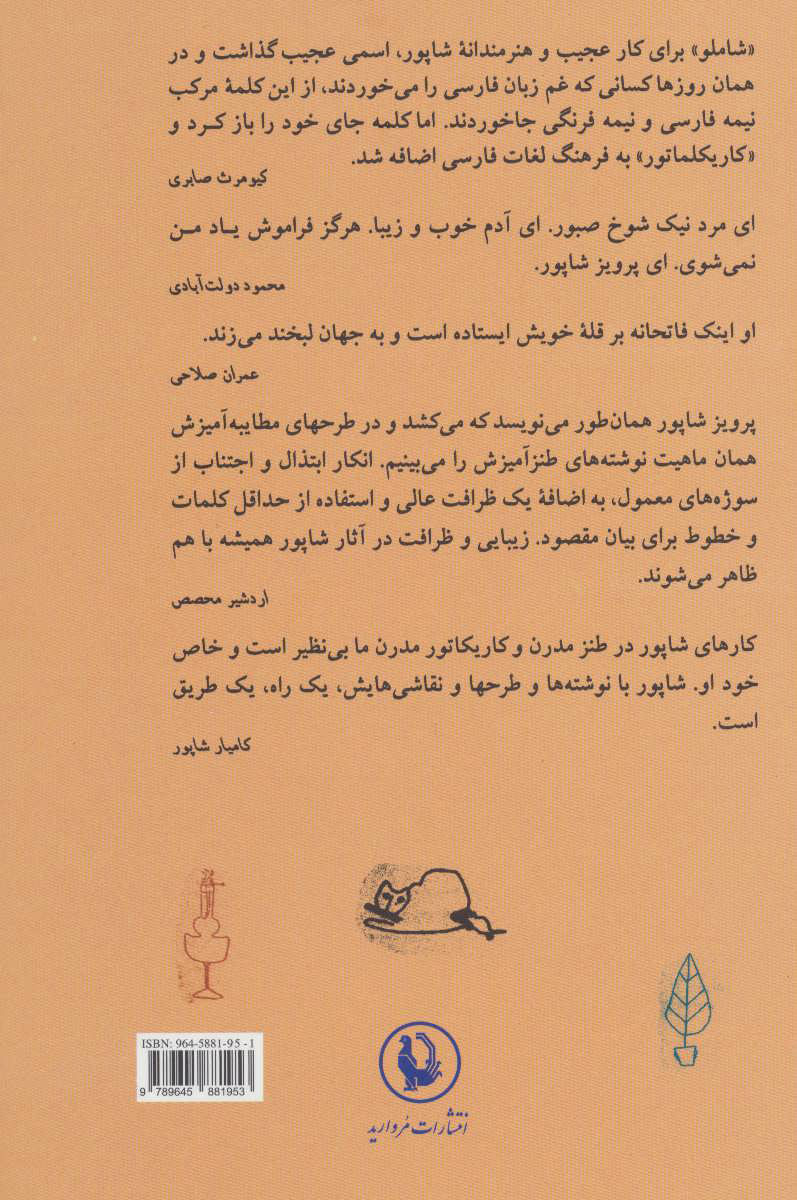 «شاملو» برای کار عجیب و هنرمندانهٔ شاپور، اسمی عجیب گذاشت و در
همان روزها کسانی که غم زبان فارسی را می‌خوردند، از این کلمهٔ مرکب
نیمه فارسی و نیمه فرنگی جاخوردند. اما کلمه جای خود را باز کرد و
«کاریکلماتور» به فرهنگ لغات فارسی اضافه شد.
کیومرث صابری
ای مرد نیک شوخ صبور. ای آدم خوب و زیبا. هرگز فراموش یاد من
نمی‌شوی. ای پرویز شاپور.
محمود دولت‌آبادی
او اینک فاتحانه بر قلهٔ خویش ایستاده است و به جهان لبخند می‌زند.
عمران صلاحی
پرویز شاپور همان‌طور می‌نویسد که می‌کشد و در طرحهای مطایبه‌آمیزش
همان ماهیت نوشته‌های طنزآمیزش را می‌بینیم. انکار ابتذال و اجتناب از
سوژه‌های معمول، به اضافهٔ یک ظرافت عالی و استفاده از حداقل کلمات
و خطوط برای بیان مقصود. زیبایی و ظرافت در آثار شاپور همیشه با هم
ظاهر می‌شوند.
اردشیر محصص
کارهای شاپور در طنز مدرن و کاریکاتور مدرن ما بی‌نظیر است و خاص
خود او. شاپور با نوشته‌ها و طرحها و نقاشی‌هایش، یک راه، یک طریق
است.
کامیار شاپور
ISBN: 964-5881-95-1
9 789645 881953
انتشارات مُروارید